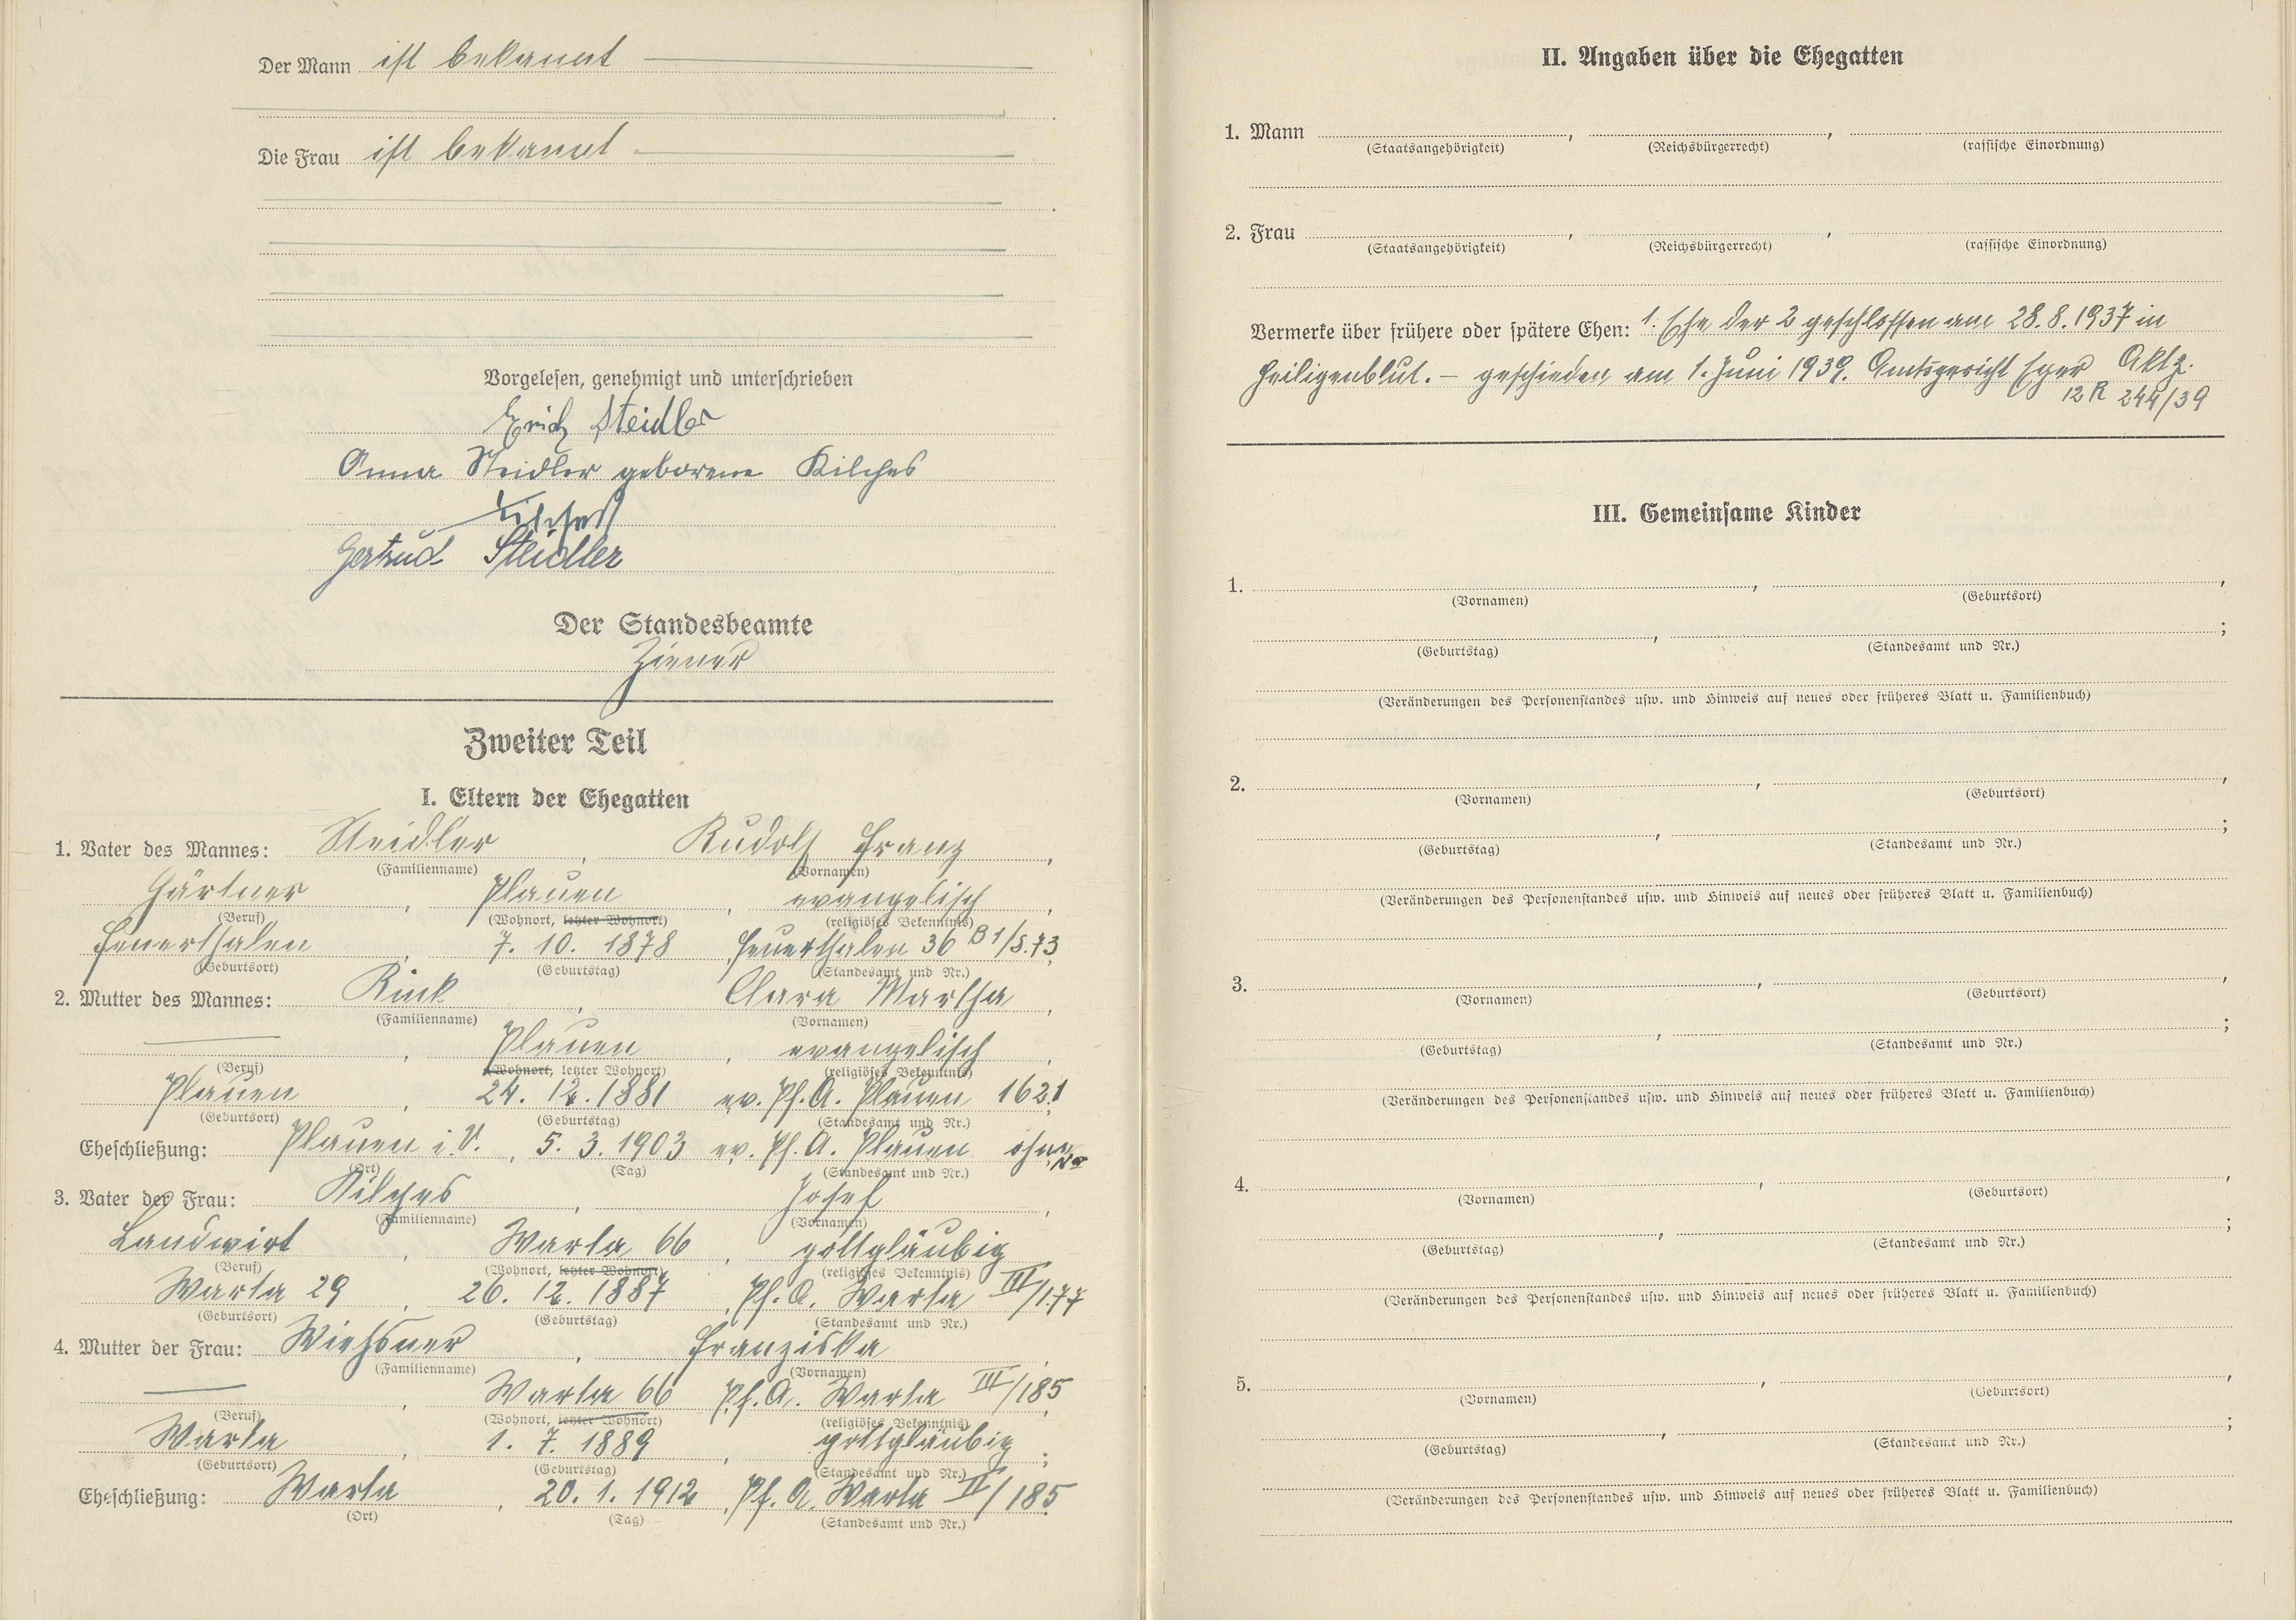 Der Mann ist bekannt
Die Frau ist bekannt
Vorgelesen, genehmigt und unterschrieben
Erich Steidler
Anna Steidler geborene Kilches
Kilches
Gertrud Steidler
Der Standesbeamte
Ziener
Zweiter Teil
I. Eltern der Ehegatten
1. Vater des Mannes: Steidler, Rudolf Franz,
(Familienname) (Vornamen)
Gärtner, Plauen, evangelisch,
(Beruf) (Wohnort, letzter Wohnort) (religiöses Bekenntnis)
Feuerthalen, 7. 10. 1878, Feuerthalen 36 B 1/S. 73,
(Geburtsort) (Geburtstag) (Standesamt und Nr.)
2. Mutter des Mannes: Rink, Clara Martha,
(Familienname) (Vornamen)
Plauen, evangelisch,
(Beruf) (Wohnort, letzter Wohnort) (religiöses Bekenntnis)
Plauen, 24. 12. 1881 ev. Pf. A. Plauen 1621;
(Geburtsort) (Geburtstag) (Standesamt und Nr.)
Eheschließung: Plauen i. V., 5. 3. 1903 ev. Pf. A. Plauen ohne Nr
(Ort) (Tag) (Standesamt und Nr.)
3. Vater der Frau: Kilches, Josef,
(Familienname) (Vornamen)
Landwirt, Warta 66, gottgläubig
(Beruf) (Wohnort, letzter Wohnort) (religiöses Bekenntnis)
Warta 29, 26. 12. 1887, Pf. A. Warta III/177
(Geburtsort) (Geburtstag) (Standesamt und Nr.)
4. Mutter der Frau: Wiehsner, Franziska,
(Familienname) (Vornamen)
Warta 66 Pf. A. Warta III/185,
(Beruf) (Wohnort, letzter Wohnort) (religiöses Bekenntnis)
Warta, 1. 7. 1889, gottgläubig;
(Geburtsort) (Geburtstag) (Standesamt und Nr.)
Eheschließung: Warta, 20. 1. 1912, Pf. A. Warta II/185.
(Ort) (Tag) (Standesamt und Nr.)
II. Angaben über die Ehegatten
1. Mann , ,
(Staatsangehörigkeit) (Reichsbürgerrecht) (rassische Einordnung)
2. Frau , ,
(Staatsangehörigkeit) (Reichsbürgerrecht) (rassische Einordnung)
Vermerke über frühere oder spätere Ehen: 1. Ehe der 2 geschlossen am 28. 8. 1937 in
Heiligenblut. – geschieden am 1. Juni 1939. Amtsgericht Eger Aktz.
12 R 244/39
III. Gemeinsame Kinder
1. , ,
(Vornamen) (Geburtsort)
, ;
(Geburtstag) (Standesamt und Nr.)
(Veränderungen des Personenstandes usw. und Hinweis auf neues oder früheres Blatt u. Familienbuch)
2. , ,
(Vornamen) (Geburtsort)
, ;
(Geburtstag) (Standesamt und Nr.)
(Veränderungen des Personenstandes usw. und Hinweis auf neues oder früheres Blatt u. Familienbuch)
3. , ,
(Vornamen) (Geburtsort)
, ;
(Geburtstag) (Standesamt und Nr.)
(Veränderungen des Personenstandes usw. und Hinweis auf neues oder früheres Blatt u. Familienbuch)
4. , ,
(Vornamen) (Geburtsort)
, ;
(Geburtstag) (Standesamt und Nr.)
(Veränderungen des Personenstandes usw. und Hinweis auf neues oder früheres Blatt u. Familienbuch)
5. , ,
(Vornamen) (Geburtsort)
, ;
(Geburtstag) (Standesamt und Nr.)
(Veränderungen des Personenstandes usw. und Hinweis auf neues oder früheres Blatt u. Familienbuch)